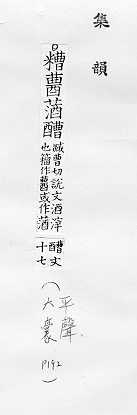 集韻
○糟醩
臧曹切說文酒滓
也籀作或作
醩文
十七
(平聲
六豪
P192)